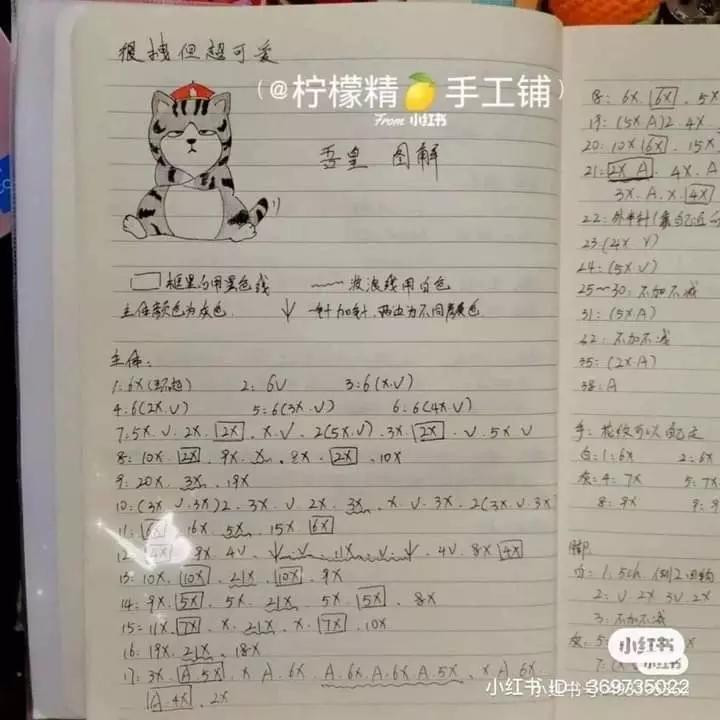 很拽但超可爱
(@柠檬精🍋手工铺)
From 小红书
吾皇 图解
框里的用黑色线 波浪线用白色
主体颜色为灰色. 一针加针,两边为不同颜色
主体:
1:6X(环起) 2:6V 3:6(X.V)
4:6(2X.V) 5:6(3X.V) 6:6(4X.V)
7:5X.V.2X.2X.X.V.2(5X.V).3X.2X.V.5X V
8:10X.2X.9X.X.8X.2X.10X
9:20X.3X.19X
10:(3X.V.3X)2.3X.V.2X.3X.X.V.3X.2(3X.V.3X
11:6X.16X.5X.15X.6X
12:4X.9X.4V. .V. .11X.V. .4V.8X 4X
13:10X.10X.21X.10X.9X
14:9X.5X.5X.21X.5X.5X.8X
15:11X.7X.X.21X.X.7X.10X
16:19X.21X.18X
17:3X.A.5X.X.A.6X.A.6X.A.6X.A.5X.X.A.6X
A.4X.2X
8:6X.6X.5X
19:(5X A)2.4X
20:10X 6X.15X
21:2X A.4X.A
3X.A.X.4X
22:外半针
23:(4X V)
24:(5X.V)
25~30:不加不减
31:(5X.A)
32:不加不减
35:(2X.A)
38:A
手:花纹可以自定
白:1:6X 2:6X
灰:4:7X 5:7X
8:9X 9:9
脚
白:1.5ch.
2:V.2X 3V.2X
3:不加不减
灰:5:
7:
小红书
小红书 ID:369735022